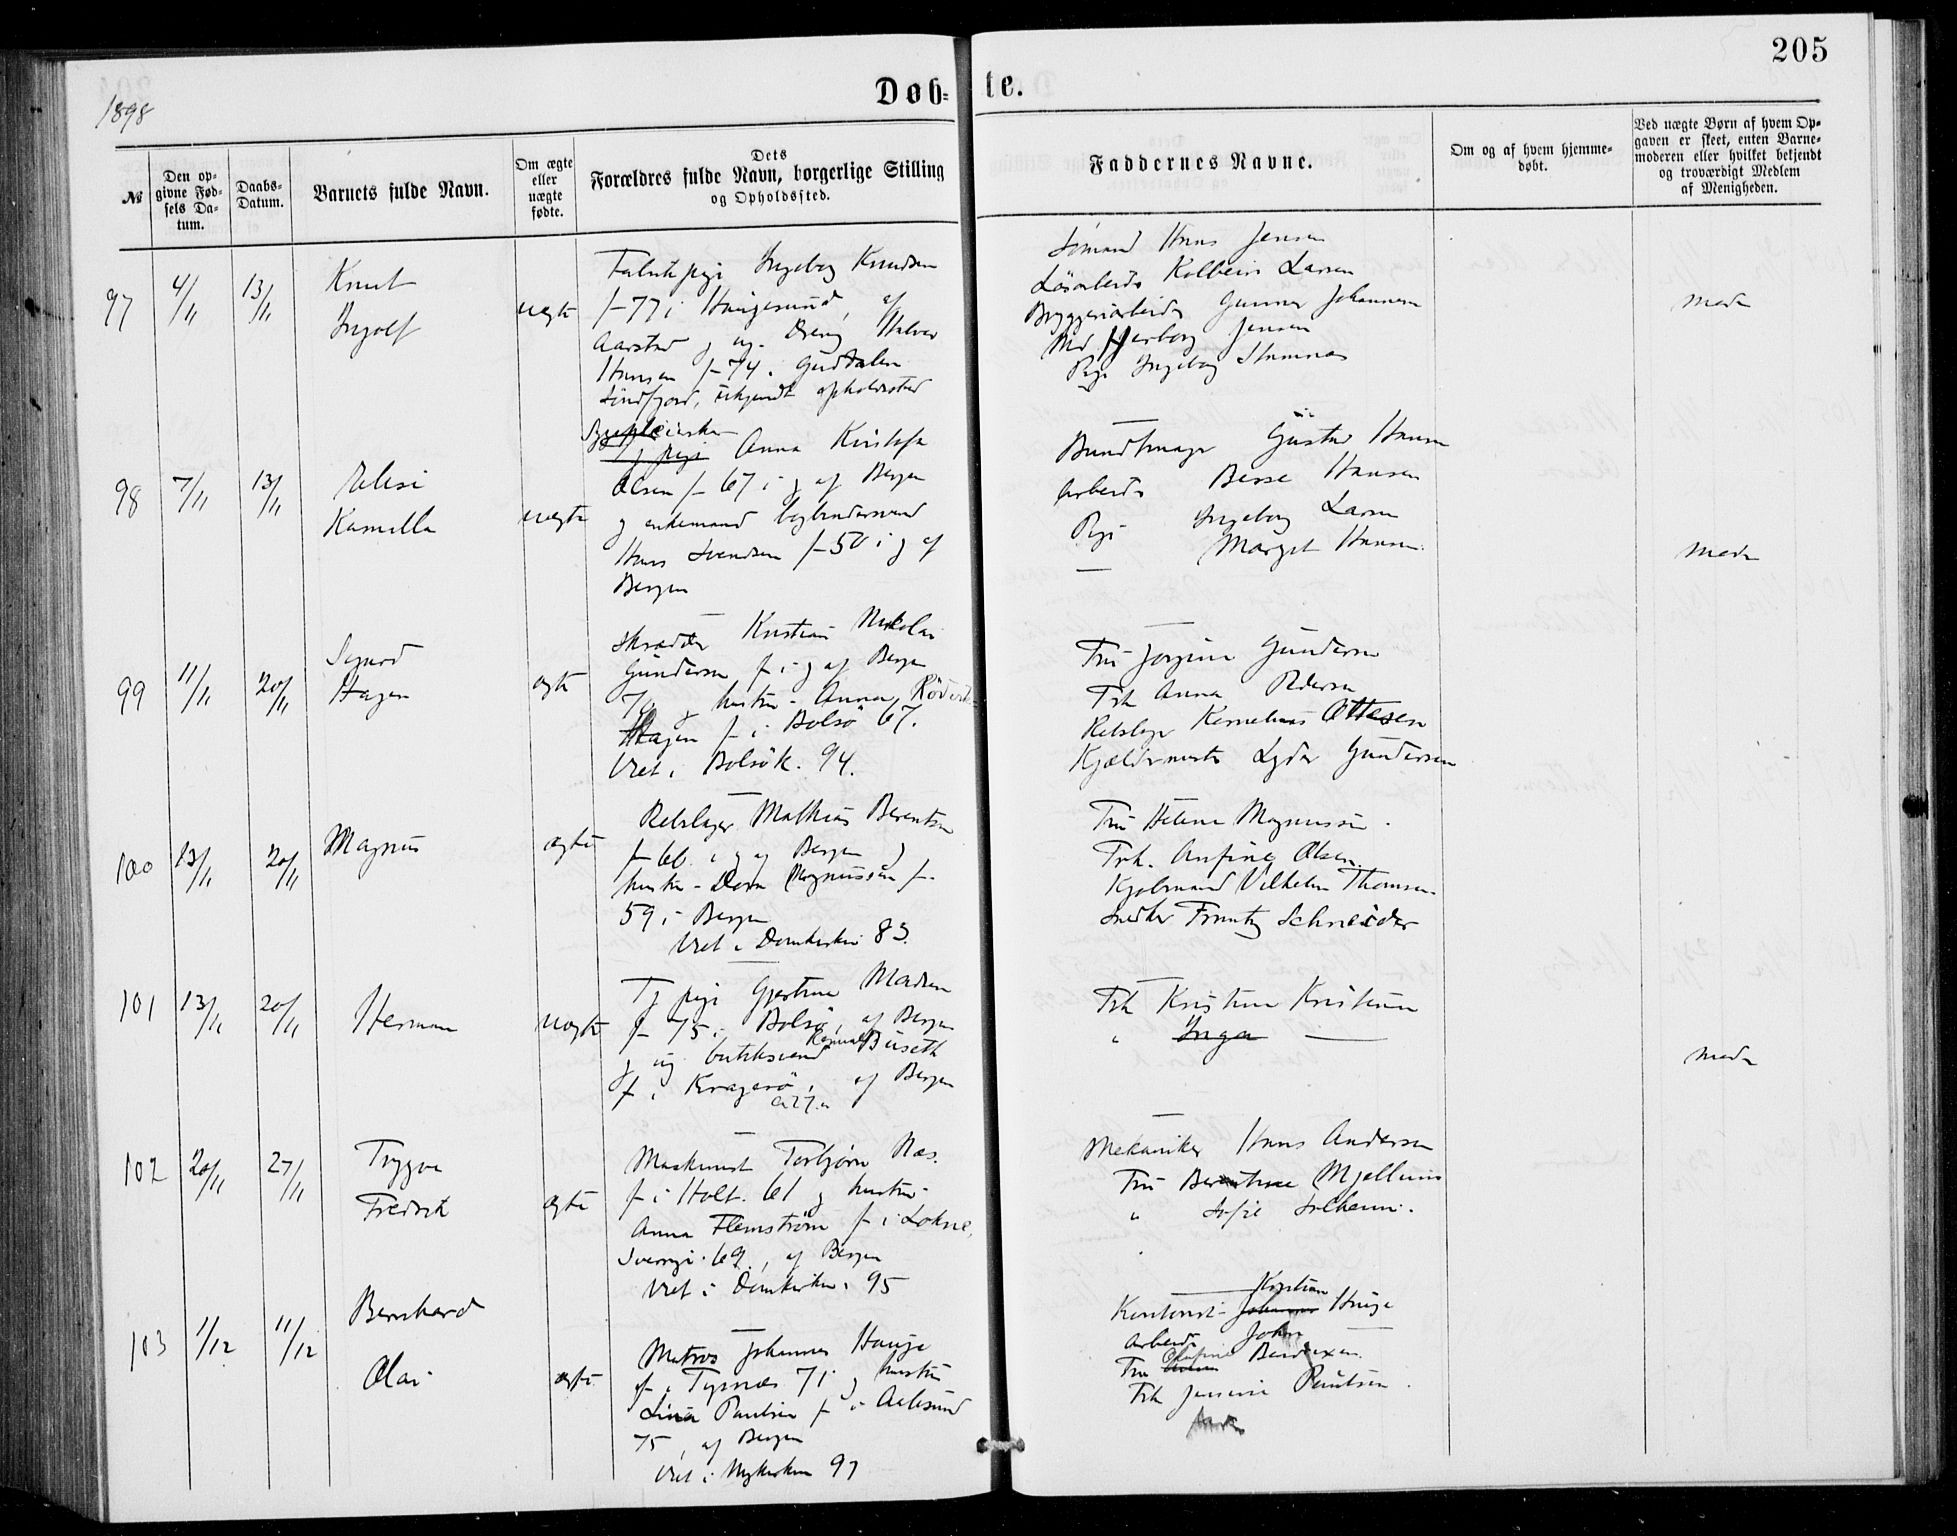 205
1898
Døb-
te.
№
Den op-
givne Fød-
sels Da-
tum.
Daabs-
Datum.
Barnets fulde Navn.
Om ægte
eller
uægte
fødte.
Dets
Forældres fulde Navn, borgerlige Stilling
og Opholdssted.
Faddernes Navne.
Om og af hvem hjemme-
døbt.
Ved uægte Børn af hvem Op-
gaven er skeet, enten Barne-
moderen eller hvilket bekjendt
og troværdigt Medlem
af Menigheden.
97
4/11
13/11
Knut
Ingolf
uægte
Ingeborg Knudsen
f. 77 i Haugesund, af
Aarstad og ug. Dreng Halvor
Hansen f. 74 i
Søndfjord, opholdssted
Sømand Hans Jensen
Løsarbeider Kolbein Larsen
Bryggeriarbeider Gunnar Johannesen
Jensen
Pige Ingeborg
moder
98
7/11
13/11
Elisi
Kamilla
uægte
Sygepleierske
pige Anna Kristofa
Olsen f. 67 i og af Bergen
og enkemand
Hans Svendsen f. 50 i og af
Bergen
Bundtmager Gustav Hansen
Arbeider Berse Hansen
Pige Ingeborg Larsen
— Margit Hansen
moder
99
11/11
20/11
Sigurd
Hagen
ægte
Skrædder Kristian Nikolai
Gundersen f. i og af Bergen
70 og hustru Anna
Hagen f. i Bolsø 67.
Viet i Bolsø K. 94.
Fru Jørgine Gundersen
Frk Anna Pedersen
Rebslager Kornelius Ottesen
Kjældermester Lyder Gundersen
100
13/11
20/11
Magnus
ægte
Rebslager Mathias Berentsen
f. 66 i og af Bergen og
hustru Dorn Magnussen f.
59 i Bergen
Viet i Domkirken 83.
Fru Helene Magnussen.
Frk. Anfine Olsen.
Vilhelm Thomsen.
Snedker Frantz Schneider
101
13/11
20/11
Herman
uægte
Tj pige Gjertine Madsen
f. 75 i Bolsø, af Bergen
og ug butiksvend Buseth
f. i Kragerø, af Bergen
Frk Kristine Kristensen
" Inga —
moder
102
20/11
27/11
Trygve
Fredrik
ægte
Maskinist Torbjørn Næs.
f. i Holt. 61 og hustru
Anna Flemstrøm f. i Lokne,
Sverrige 69., af Bergen
Viet i Domkirken 95
Mekaniker Hans Andersen
Fru Berentine Mjellum
" Sofie Solheim.
103
1/12
11/12
Bernhard
Olai
ægte
Matros Johannes Hauge
f. i Tysnæs 71 og hustru
Lina Paulsen f. i Aalesund
75, af Bergen
Viet i Nykirken 97
Kristian
Kontorist Johannes Hauge
Arbeider John —
Fru Bendixen
Frk Jensine Paulsen.